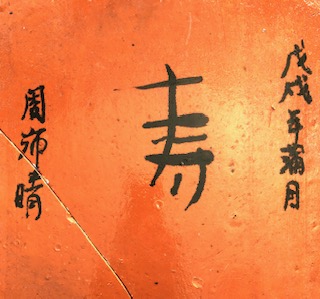 戊戌年蒲月
寿
周沛晴